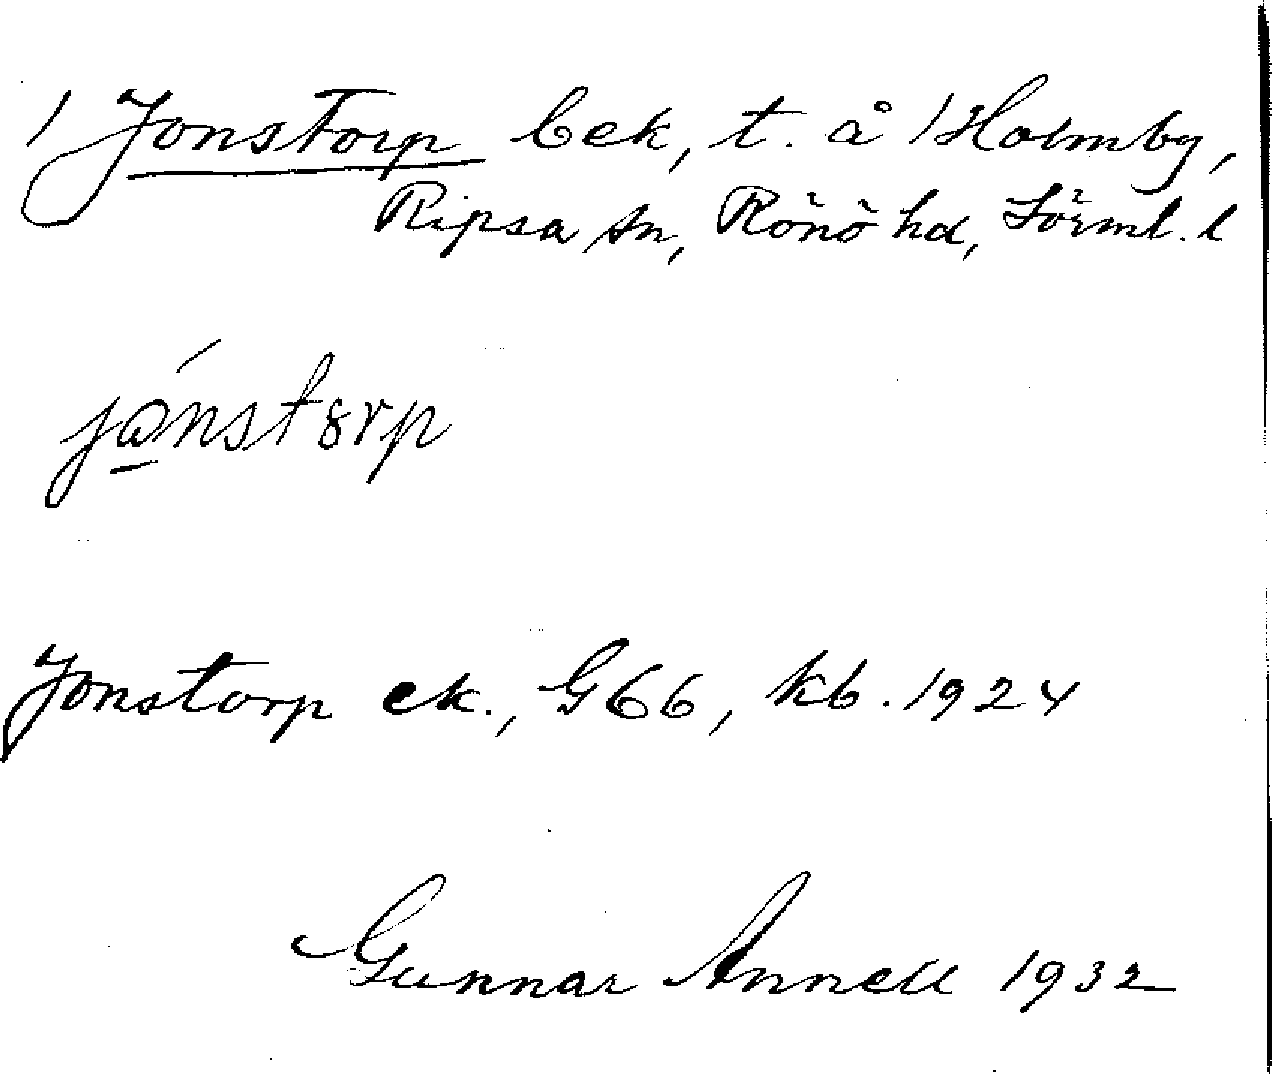 1 Jonstorp bek, t. å 1 Holmby,
Ripsa sn, Rönö hd, Sörml. l
jónstȣrp
Jonstorp ek., G66, kb. 1924
Gunnar Annell 1932